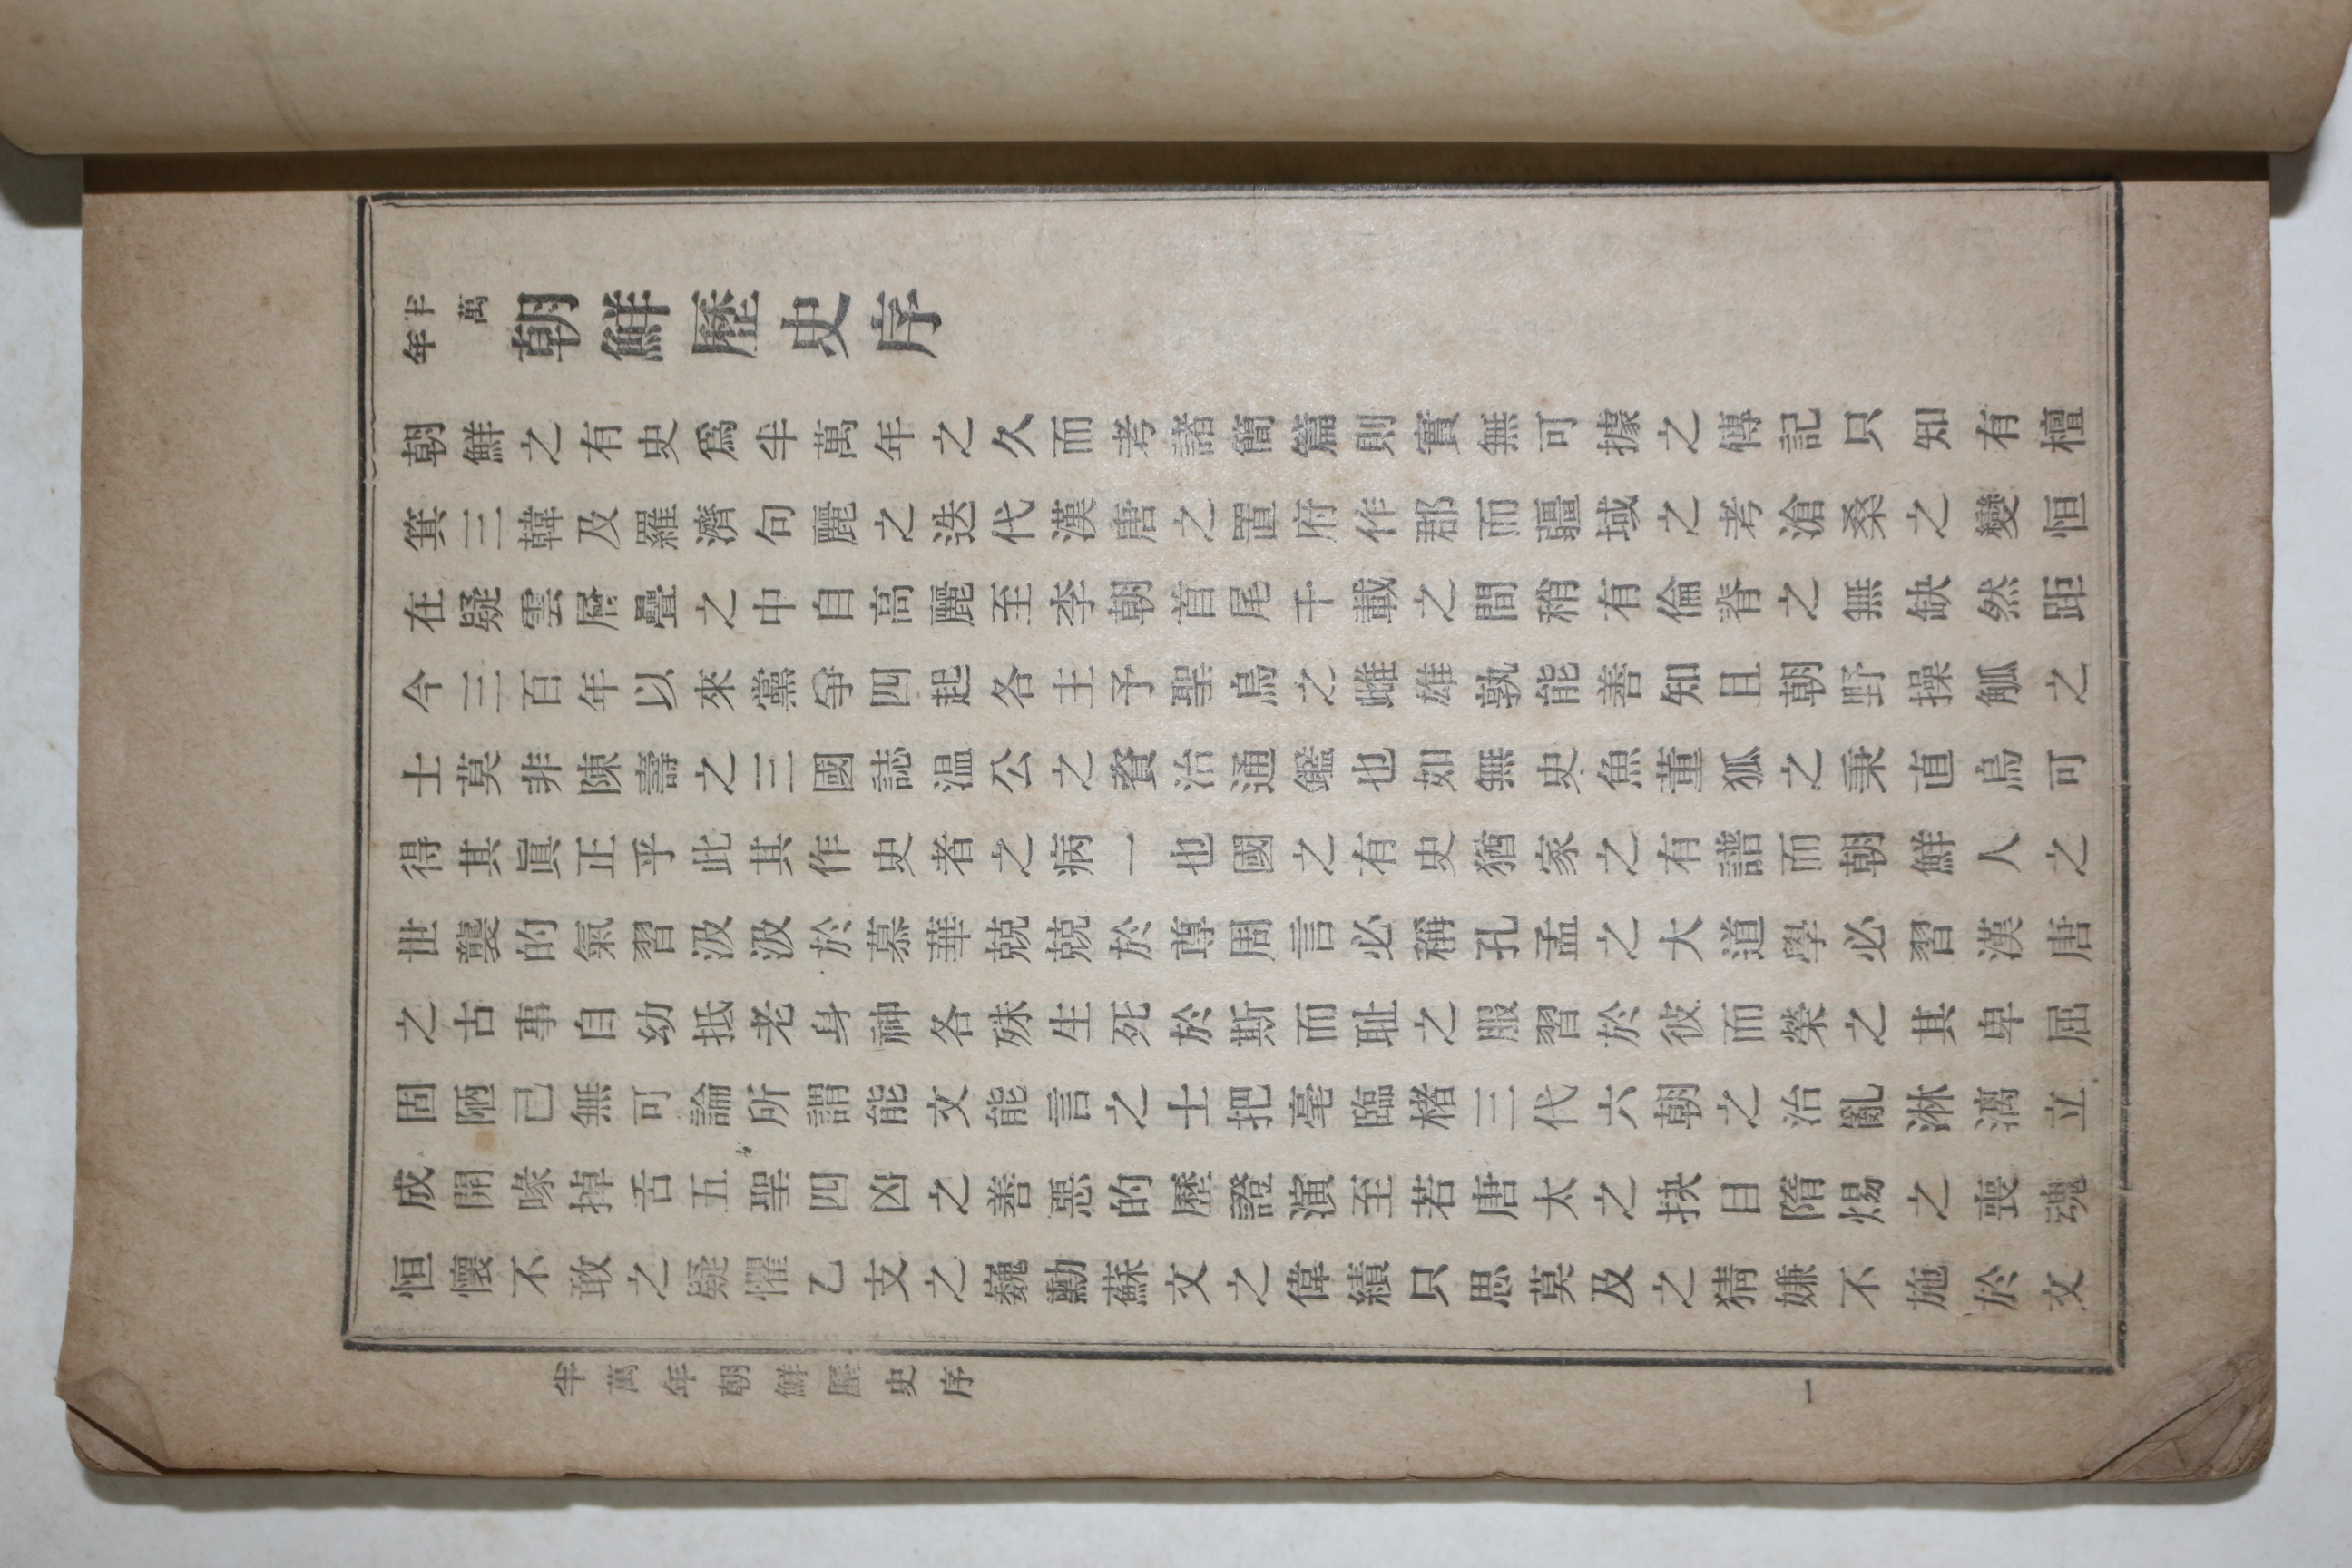 半萬年朝鮮歷史序
朝鮮之有史爲半萬年之久而考諸簡篇則實無可據之傳記只知有檀
箕三韓及羅濟句麗之迭代漢唐之置府作郡而疆域之考滄桑之變恒
在疑雲層疊之中自高麗至李朝首尾千載之間稍有倫脊之無缺然距
今三百年以來黨爭四起各主予聖烏之雌雄孰能善知且朝野操觚之
士莫非陳壽之三國誌温公之資治通鑑也如無史魚董狐之秉直烏可
得其眞正乎此其作史者之病一也國之有史猶家之有譜而朝鮮人之
世襲的氣習汲汲於慕華兢兢於尊周言必稱孔孟之大道學必習漢唐
之古事自幼抵老身神各殊生死於斯而耻之服習於彼而榮之其卑屈
固陋己無可論所謂能文能言之士把毫臨楮三代六朝之治亂淋漓立
成開喙掉舌五聖四凶之善惡的歷證演至若唐太之抉目隋煬之喪魂
恒懷不敢之疑懼乙支之巍勳蘇文之偉績只思莫及之猜嫌不施於文
半萬年朝鮮歷史序
一